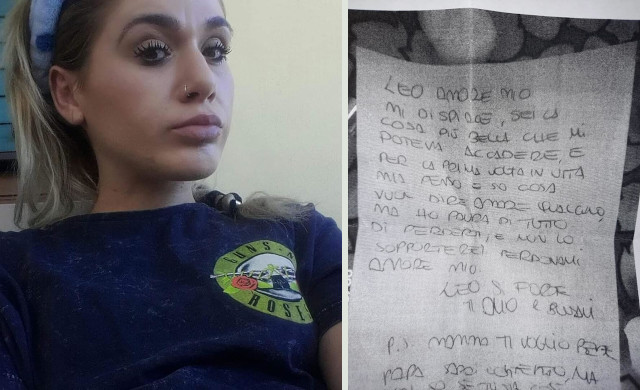 GUNS N'
ROSES
LEO AMORE MIO
MI DISPIACE, SEI LA
COSA PIÙ BELLA CHE MI
POTEVA ACCADERE, E
PER LA PRIMA VOLTA IN VITA
MIA PENSO E SO COSA
VUOL DIRE AMORE QUALCUNO,
MA HO PAURA DI TUTTO
DI PERDERTI, E NON LO
SOPPORTEREI PERDONAMI
AMORE MIO
LEO SII FORTE
TI AMO E SCUSAMI
P.S. NONNA TI VOGLIO BENE
PAPÀ SARÀ CONTENTO MA